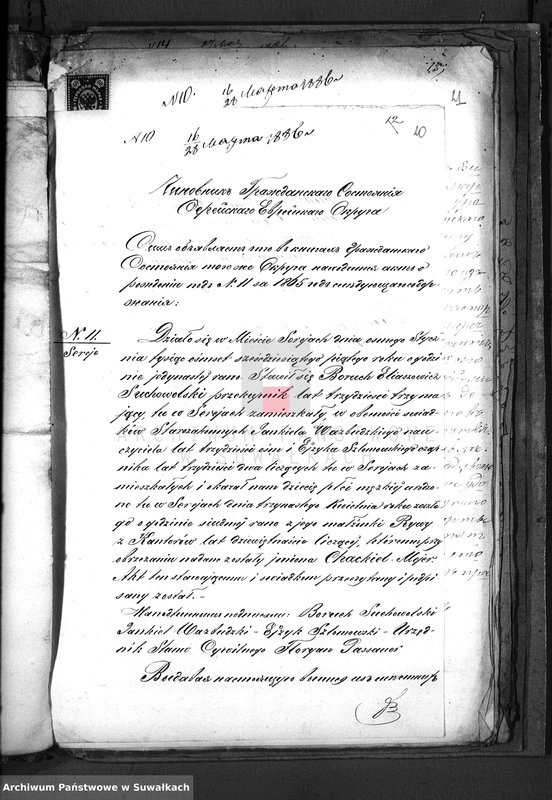 15
21
N10. 16/28 Марта 1886 г
12
20
N10 16/28 марта 1886 г
Чиновникъ Гражданскаго Состоянія
Серейскаго Еврейскаго Округа
Симъ объявляетъ что въ книгахъ Гражданскаго
Состоянія того же Округа находится актъ о
рожденіи подъ N. 11 за 1865 годъ слѣдующаго содер-
жанія:
N. 11.
Sereje
Działo się w Mieście Serejach dnia ósmego Stycz-
nia tysiąc ośmset sześćdziesiątego piątego roku o godzi-
nie jedynastej rano. Stawił się Boruch Eliaszowicz
Suchowolski przekupnik lat trzydzieście trzy ma-
jący, tu w Serejach zamieszkały, w obecności świad-
ków Starozakonnych Jankiela Wazbudzkiego nau-
czyciela lat trzydzieście ośm i Ejzyka Szlomowskiego
lat trzydzieści dwa liczących tu w Serejach za-
mieszkałych i okazał nam dziecię płci męzkiej urodzo-
ne tu w Serejach dnia trzynastego Kwietnia roku zeszłe-
go o godzinie siódmej rano z jego małżonki Rywy
z Kantorów lat dziewiętnaście liczącej, któremu przy
obrzezaniu nadane zostały imiona Chackiel-Mejer.
Akt ten stawającemu i świadkom przeczytany i podpi-
sany został. -
На подлинномъ подписали: Boruch Suchowolski
Jankiel Wazbudzki - Ejzyk Szlomowski - Urzęd-
nik Stanu Cywilnego Floryan Passauer
Выдавая настоящую выпись изъ
Archiwum Państwowe w Suwałkach